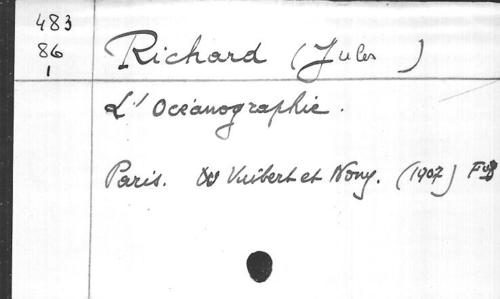 483
86
1
Richard (Jules)
L'Océanographie.
Paris. Vuibert et Nony. (1907)